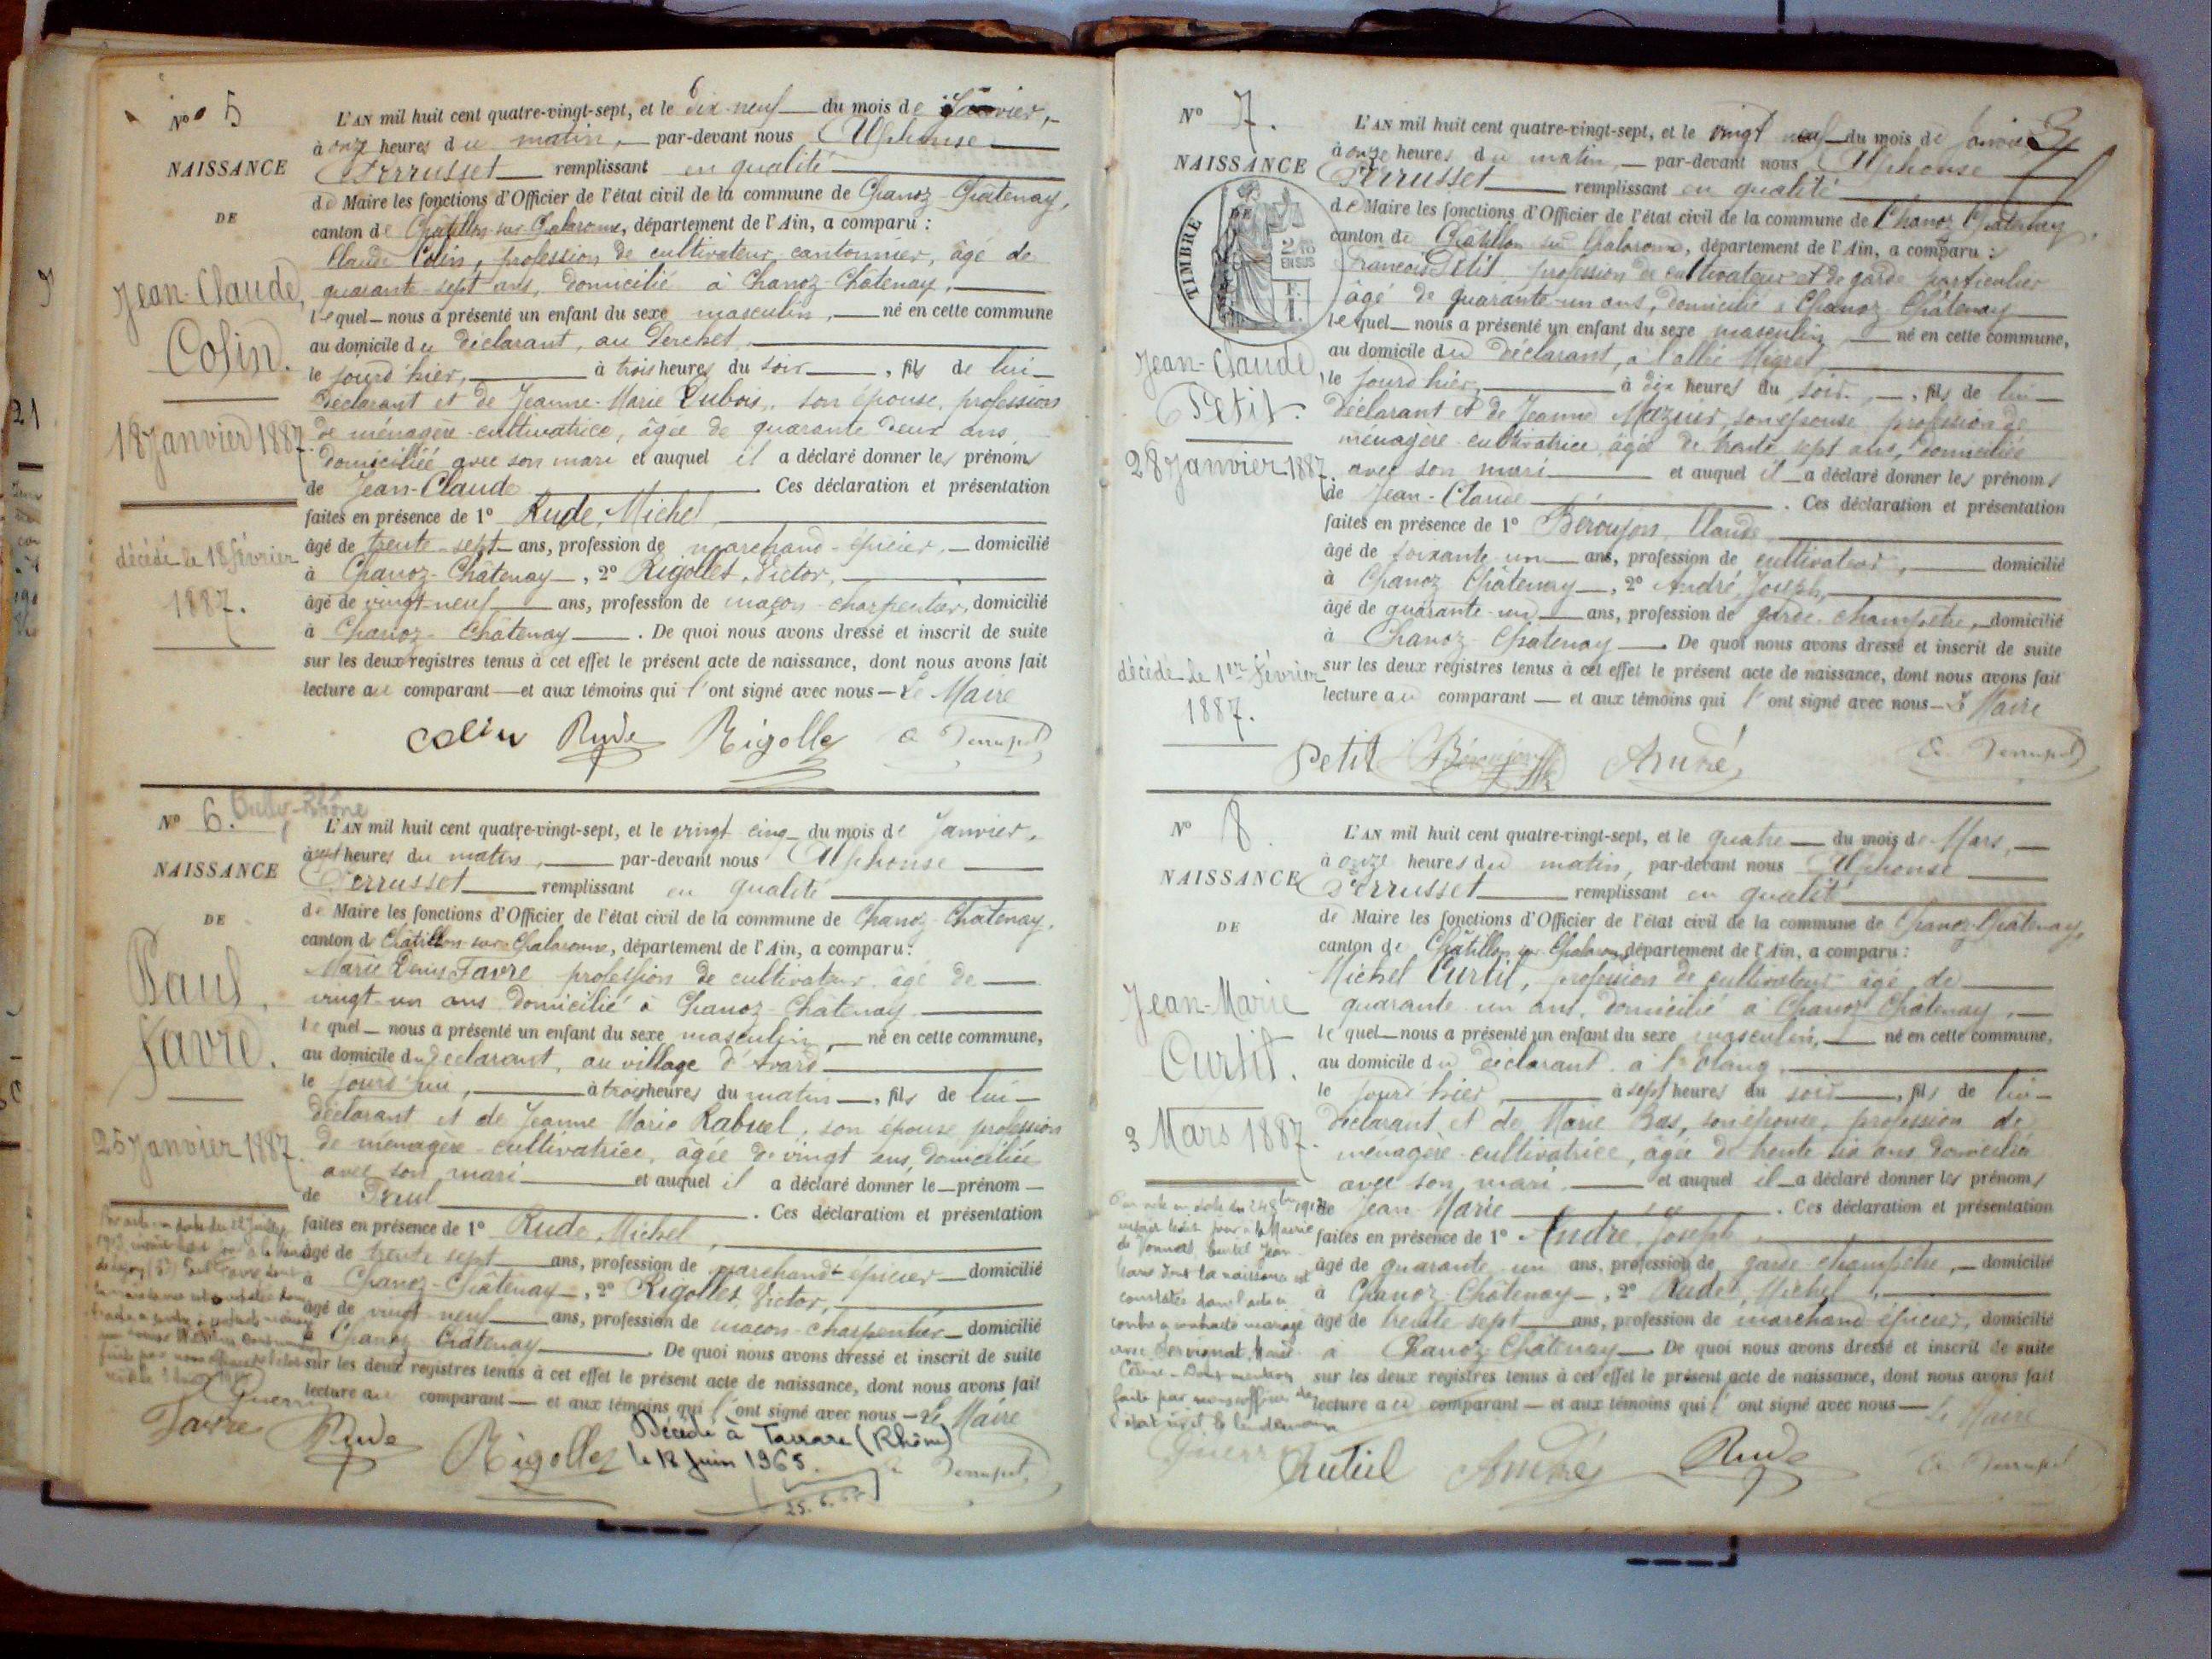 N° 5
NAISSANCE
DE
Jean-Claude
Colin.
18 Janvier 1887.
décédé le 18 février
1887.
L'AN mil huit cent quatre-vingt-sept, et le dix-neuf du mois de Janvier,
à onze heures du matin, par-devant nous Alphonse
Perrusset remplissant en qualité
de Maire les fonctions d'Officier de l'état civil de la commune de Chanoz-Châtenay,
canton de Châtillon-sur-Chalaronne, département de l'Ain, a comparu :
Claude Colin, profession de cultivateur cantonnier, âgé de
quarante-sept ans, domicilié à Chanoz-Châtenay,
lequel nous a présenté un enfant du sexe masculin, né en cette commune
au domicile du déclarant, au Perchet,
le jourd'hier, à trois heures du soir, fils de lui
déclarant et de Jeanne-Marie Dubois, son épouse, profession
de ménagère-cultivatrice, âgée de quarante deux ans,
domiciliée avec son mari et auquel il a déclaré donner les prénoms
de Jean-Claude. Ces déclaration et présentation
faites en présence de 1° Rude, Michel,
âgé de trente-sept ans, profession de marchand-épicier, domicilié
à Chanoz-Châtenay, 2° Rigollet, Victor,
âgé de vingt-neuf ans, profession de maçon-charpentier, domicilié
à Chanoz-Châtenay. De quoi nous avons dressé et inscrit de suite
sur les deux registres tenus à cet effet le présent acte de naissance, dont nous avons fait
lecture au comparant et aux témoins qui l'ont signé avec nous – Le Maire
Colin Rude Rigollet a Perrusset
N° 6.
NAISSANCE
DE
Paul
Favre.
25 Janvier 1887.
L'AN mil huit cent quatre-vingt-sept, et le vingt cinq du mois de Janvier,
à heures du matin, par-devant nous Alphonse
Perrusset remplissant en qualité
de Maire les fonctions d'Officier de l'état civil de la commune de Chanoz-Châtenay,
canton de Châtillon-sur-Chalaronne, département de l'Ain, a comparu :
Marie Denis Favre profession de cultivateur âgé de
vingt-un ans domicilié à Chanoz-Châtenay
lequel nous a présenté un enfant du sexe masculin, né en cette commune,
au domicile du déclarant, au village d'
le jourd'hui, à trois heures du matin, fils de lui
déclarant et de Jeanne Marie Rabuel, son épouse profession
de ménagère-cultivatrice, âgée de vingt ans, domiciliée
avec son mari et auquel il a déclaré donner le prénom
de Paul. Ces déclaration et présentation
faites en présence de 1° Rude, Michel,
âgé de trente sept ans, profession de marchand-épicier domicilié
à Chanoz-Châtenay, 2° Rigollet, Victor,
âgé de vingt neuf ans, profession de maçon-charpentier domicilié
à Chanoz-Châtenay. De quoi nous avons dressé et inscrit de suite
sur les deux registres tenus à cet effet le présent acte de naissance, dont nous avons fait
lecture au comparant et aux témoins qui l'ont signé avec nous – Le Maire
Favre Rude Rigollet a Perrusset
Décédé à Tarare (Rhône)
le 18 Juin 1965.
N° 7.
NAISSANCE
DE
TIMBRE
Jean-Claude
Petit.
28 Janvier 1887.
décédé le 1er février
1887.
3
L'AN mil huit cent quatre-vingt-sept, et le vingt neuf du mois de Janvier
à onze heures du matin, par-devant nous Alphonse
Perrusset remplissant en qualité
de Maire les fonctions d'Officier de l'état civil de la commune de Chanoz Châtenay,
canton de Châtillon sur Chalaronne, département de l'Ain, a comparu :
François Petit profession de cultivateur et de garde particulier
âgé de quarante-un ans, domicilié à Chanoz-Châtenay
lequel nous a présenté un enfant du sexe masculin, né en cette commune,
au domicile du déclarant, à
le jourd'hier, à dix heures du soir, fils de lui
déclarant et de Jeanne Mazuir, son épouse profession de
ménagère-cultivatrice, âgée de trente sept ans, domiciliée
avec son mari et auquel il a déclaré donner les prénoms
de Jean-Claude. Ces déclaration et présentation
faites en présence de 1° Beroujon, Claude
âgé de soixante-un ans, profession de cultivateur, domicilié
à Chanoz Châtenay, 2° André, Joseph,
âgé de quarante-un ans, profession de garde-champêtre, domicilié
à Chanoz-Châtenay. De quoi nous avons dressé et inscrit de suite
sur les deux registres tenus à cet effet le présent acte de naissance, dont nous avons fait
lecture au comparant et aux témoins qui l'ont signé avec nous – Le Maire
Petit Béroujon André a Perrusset
N° 8
NAISSANCE
DE
Jean-Marie
Curtil.
3 Mars 1887.
L'AN mil huit cent quatre-vingt-sept, et le quatre du mois de Mars,
à onze heures du matin, par-devant nous Alphonse
Perrusset remplissant en qualité
de Maire les fonctions d'Officier de l'état civil de la commune de Chanoz-Châtenay,
canton de Châtillon sur Chalaronne, département de l'Ain, a comparu :
Michel Curtil, profession de cultivateur âgé de
quarante un ans, domicilié à Chanoz Châtenay,
lequel nous a présenté un enfant du sexe masculin, né en cette commune,
au domicile du déclarant à l'étang,
le jourd'hier, à sept heures du soir, fils de lui
déclarant et de Marie Bas, son épouse, profession de
ménagère-cultivatrice, âgée de trente six ans domiciliée
avec son mari, et auquel il a déclaré donner les prénoms
de Jean Marie. Ces déclaration et présentation
faites en présence de 1° André, Joseph
âgé de quarante un ans, profession de garde champêtre, domicilié
à Chanoz Châtenay, 2° Rude, Michel,
âgé de trente sept ans, profession de marchand épicier, domicilié
à Chanoz-Châtenay. De quoi nous avons dressé et inscrit de suite
sur les deux registres tenus à cet effet le présent acte de naissance, dont nous avons fait
lecture au comparant et aux témoins qui l'ont signé avec nous
Le Maire
Curtil André Rude a Perrusset